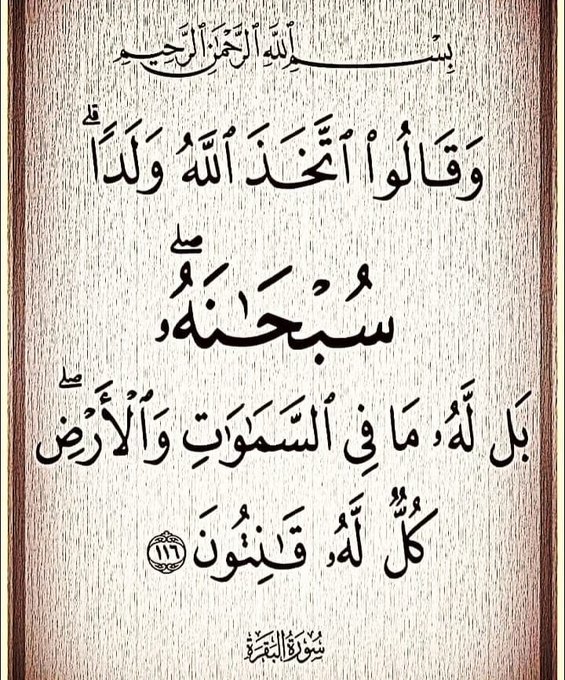 بِسْمِ ٱللَّهِ ٱلرَّحْمَٰنِ ٱلرَّحِيمِ
وَقَالُوا۟ ٱتَّخَذَ ٱللَّهُ وَلَدًا ۗ
سُبْحَٰنَهُۥ ۖ
بَل لَّهُۥ مَا فِى ٱلسَّمَٰوَٰتِ وَٱلْأَرْضِ ۖ
كُلٌّ لَّهُۥ قَٰنِتُونَ ﴿١١٦﴾
سُورَةُ البَقَرَةِ